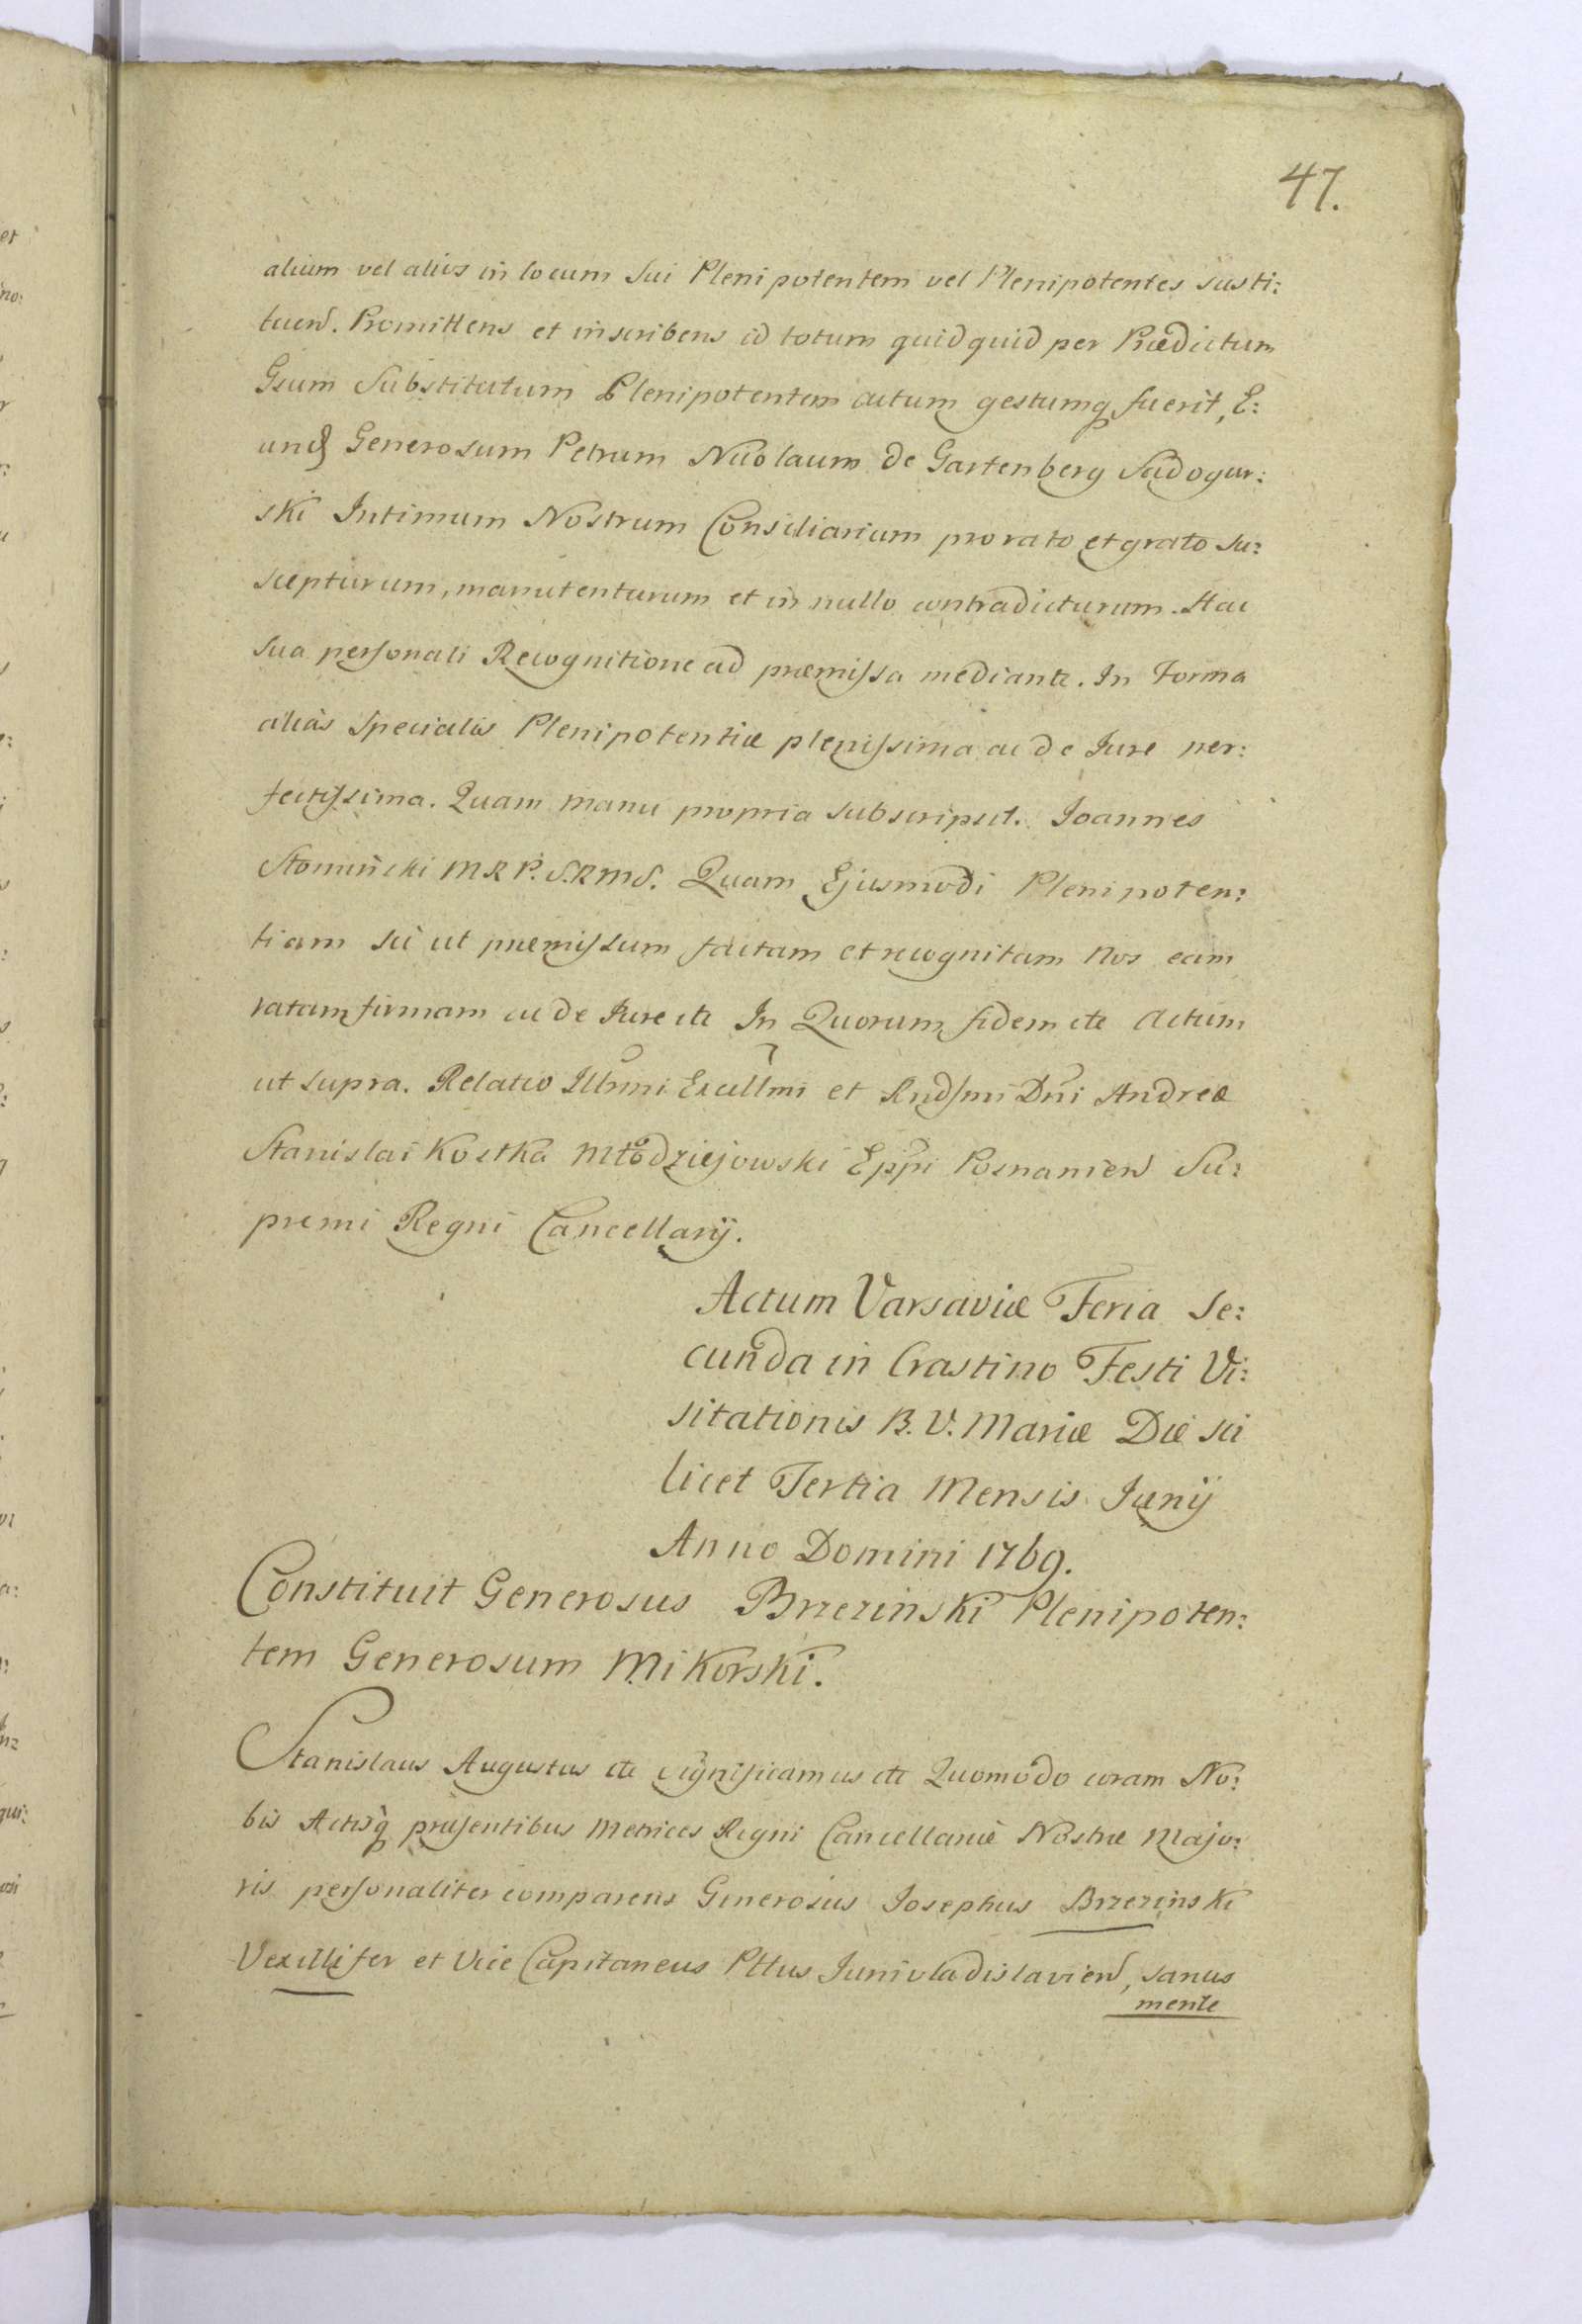 47.
alium vel alios in locum sui Plenipotentem vel Plenipotentes susti:
tuen. Promittens et inscribens id totum quidquid per Prædictum
Gsum Substitutum Plenipotentem actum gestumq fuerit, E:
und Generosum Petrum Nicolaum de Gartenberg Sadogur:
ski Intimum Nostrum Consiliarium pro rato et grato su:
scepturum, manutenturum et in nullo contradicturum. Hac
sua personali Recognitione ad præmissa mediante. In Forma
alias Specialis Plenipotentiæ plenissima ac de Jure per:
fectissima. Quam manu propria subscripsit. Joannes
Słomiński M R P. S. R M S. Quam Ejusmodi Plenipoten:
tiam sic ut præmissum factam et recognitam Nos eam
ratam firmam ac de Jure etc In Quorum fidem etc Actum
ut supra. Relatio Illmi Excellmi et Rndsmi Dni Andreæ
Stanislai Kostka Młodziejowski Eppi Posnanien Su:
premi Regni Cancellarij.
Actum Varsaviæ Feria Se:
cunda in Crastino Festi Vi:
sitationis B. V. Mariæ Die sci
licet Tertia Mensis Junij
Anno Domini 1769.
Constituit Generosus Brzezinski Plenipoten:
tem Generosum Mikorski.
Stanislaus Augustus etc Significamus etc Quomodo coram No:
bis Actisq præsentibus Metrices Regni Cancellariæ Nostræ Majo:
ris personaliter comparens Generosus Josephus Brzezinski
Vexillifer et Vice Capitaneus Pttus Junivladislavien, sanus
mente